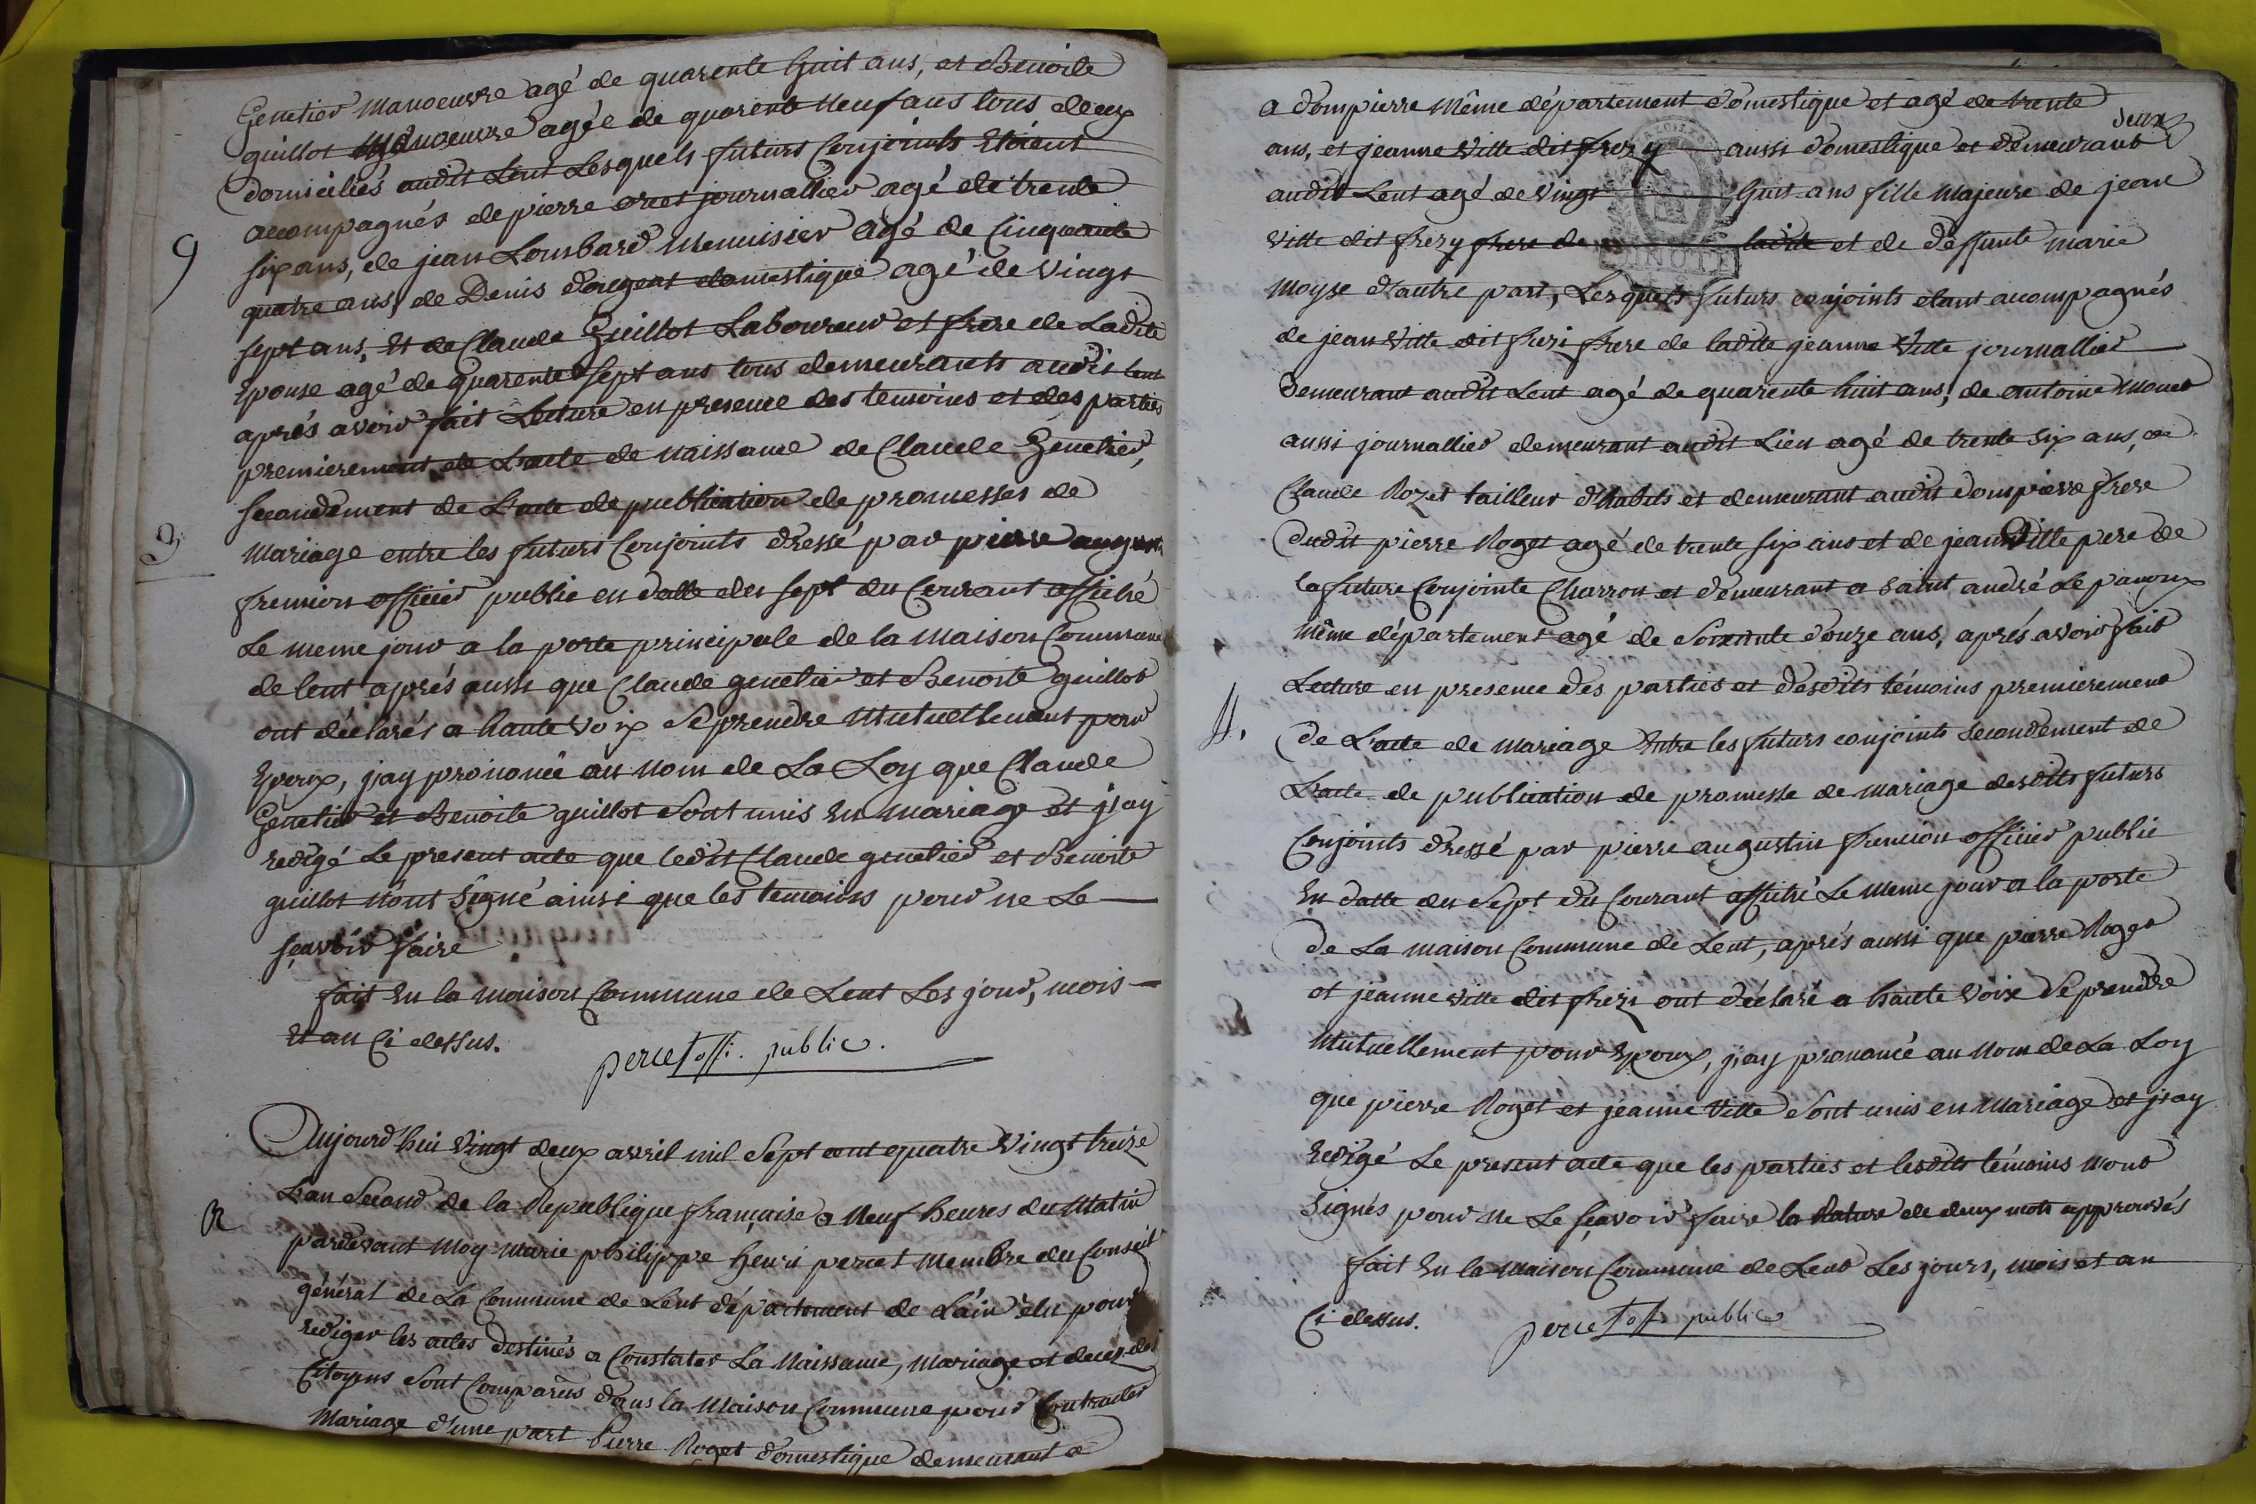 Genetier Manoeuvre agé de quarente huit ans, et Benoite
guillot Manoeuvre agée de quarente neuf ans tous deux
domiciliés audit Lent Lesquels futurs Conjoints Etoient
accompagnés de pierre oret journallier agé de trente
six ans, de jean Lombard Menuisier agé de Cinquante
quatre ans, de Denis dargent domestique agé de Vingt
sept ans, Et de Claude Guillot Laboureur et frere de Ladite
Epouse agé de quarente sept ans tous demeurants audit Lent
aprés avoir fait Lecture en presence des temoins et des parties
premierement de L'acte de naissance de Claude Genetier,
secondement de L'acte de publication de promesses de
Mariage entre les futurs Conjoints dressé par pierre august.
fremion officier public en datte du sept du Courant affiché
Le meme jour a la porte principale de la Maison Commune
de lent aprés aussi que Claude genetier et Benoite guillot
ont déclarés a haute voix Se prendre Mutuellement pour
Epoux, j'ay prononcé au Nom de La Loy que Claude
Genetier et Benoite guillot Sont unis En Mariage et j'ay
redigé Le present acte que ledit Claude genetier et Benoite
guillot n'ont Signé ainsi que les temoins pour ne Le
sçavoir faire
fait En la Maison Commune de Lent Les jour, mois
Et an Ci dessus.
percet offi. public.
Aujourd'hui Vingt deux avril mil Sept cent quatre Vingt treize
L'an Second de la Republique française a Neuf heures du Matin
pardevant Moy Marie philippe henri percet Membre du Conseil
général de La Commune de Lent département de L'ain élu pour
rediger les actes destinés a Constater La Naissance, Mariage et deces des
Citoyens Sont Comparus dans la Maison Commune pour Contracter
Mariage d'une part Pierre Roget domestique demeurant a
a dompierre Même département domestique et agé de trente
deux
ans, et jeanne Ville dit frezy aussi domestique et demeurant
audit Lent agé de Vingt huit ans fille Majeure de jean
Ville dit frezy frere de ladite et de deffunte marie
Moyse d'autre part, Lesquels futurs conjoints etant accompagnés
de jean Ville dit frezi frere de ladite jeanne Ville journallier
demeurant audit Lent agé de quarente huit ans, de antoine Monet
aussi journallier demeurant audit Lieu agé de trente six ans, de
Claude Rozet tailleur d'habits et demeurant audit dompierre frere
dudit pierre Roget agé de trente six ans et de jean Ville pere de
la future Conjointe Charron et demeurant a Saint andré Le panoux
Même département agé de Soixante douze ans, aprés avoir fait
Lecture en presence des parties et desdits témoins premierement
De L'acte de Mariage Entre les futurs conjoints Secondement de
L'acte de publication de promesse de Mariage desdits futurs
Conjoints dressé par pierre augustin fremion officier public
En datte du Sept du Courant affiché Le meme jour a la porte
de La maison Commune de Lent, aprés aussi que pierre Roget
et jeanne Ville dit frezi ont déclaré a haute Voix Se prendre
Mutuellement pour Epoux, j'ay prononcé au Nom de La Loy
que pierre Roget et jeanne Ville Sont unis en Mariage et j'ay
Redigé Le present acte que les parties et lesdits témoins n'ont
Signés pour ne Le sçavoir faire la Rature de deux mots approuvés
fait En la Maison Commune de Lent Les jours, mois et an
Ci dessus.
percet off. public